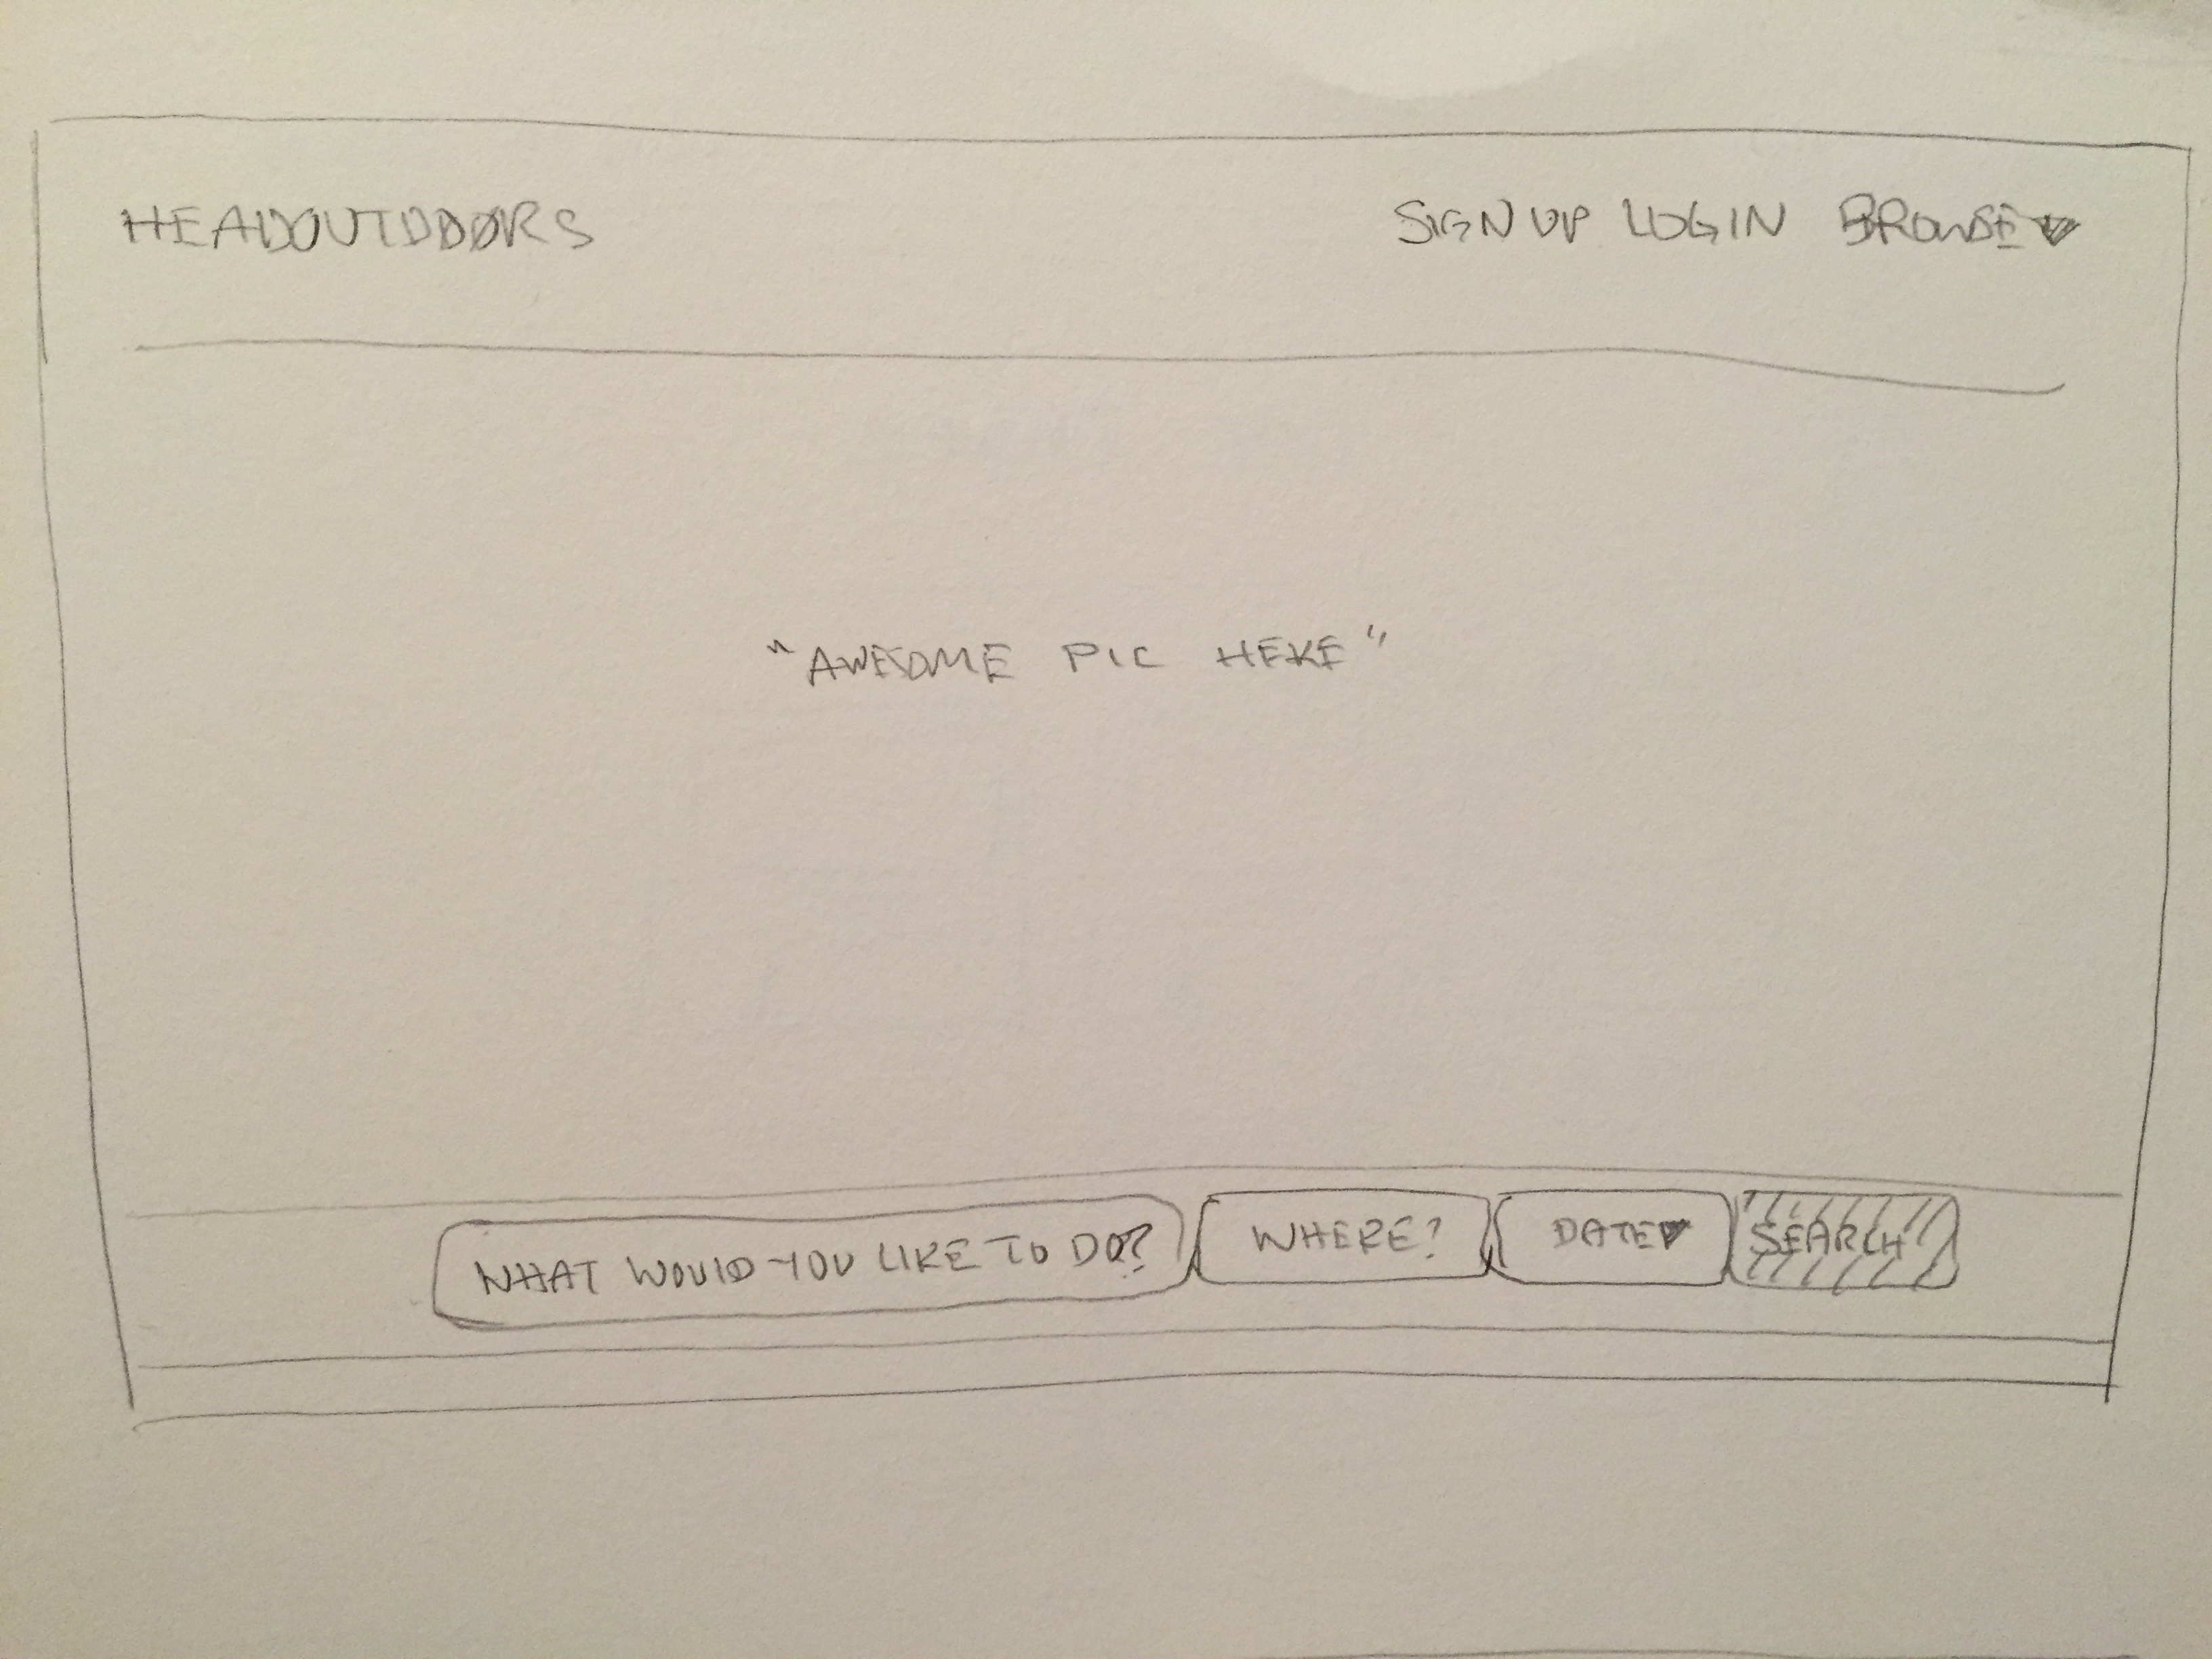 HEADOUTDOORS
SIGN UP LOGIN BROWSE
"AWESOME PIC HERE"
WHAT WOULD YOU LIKE TO DO? WHERE? DATE SEARCH